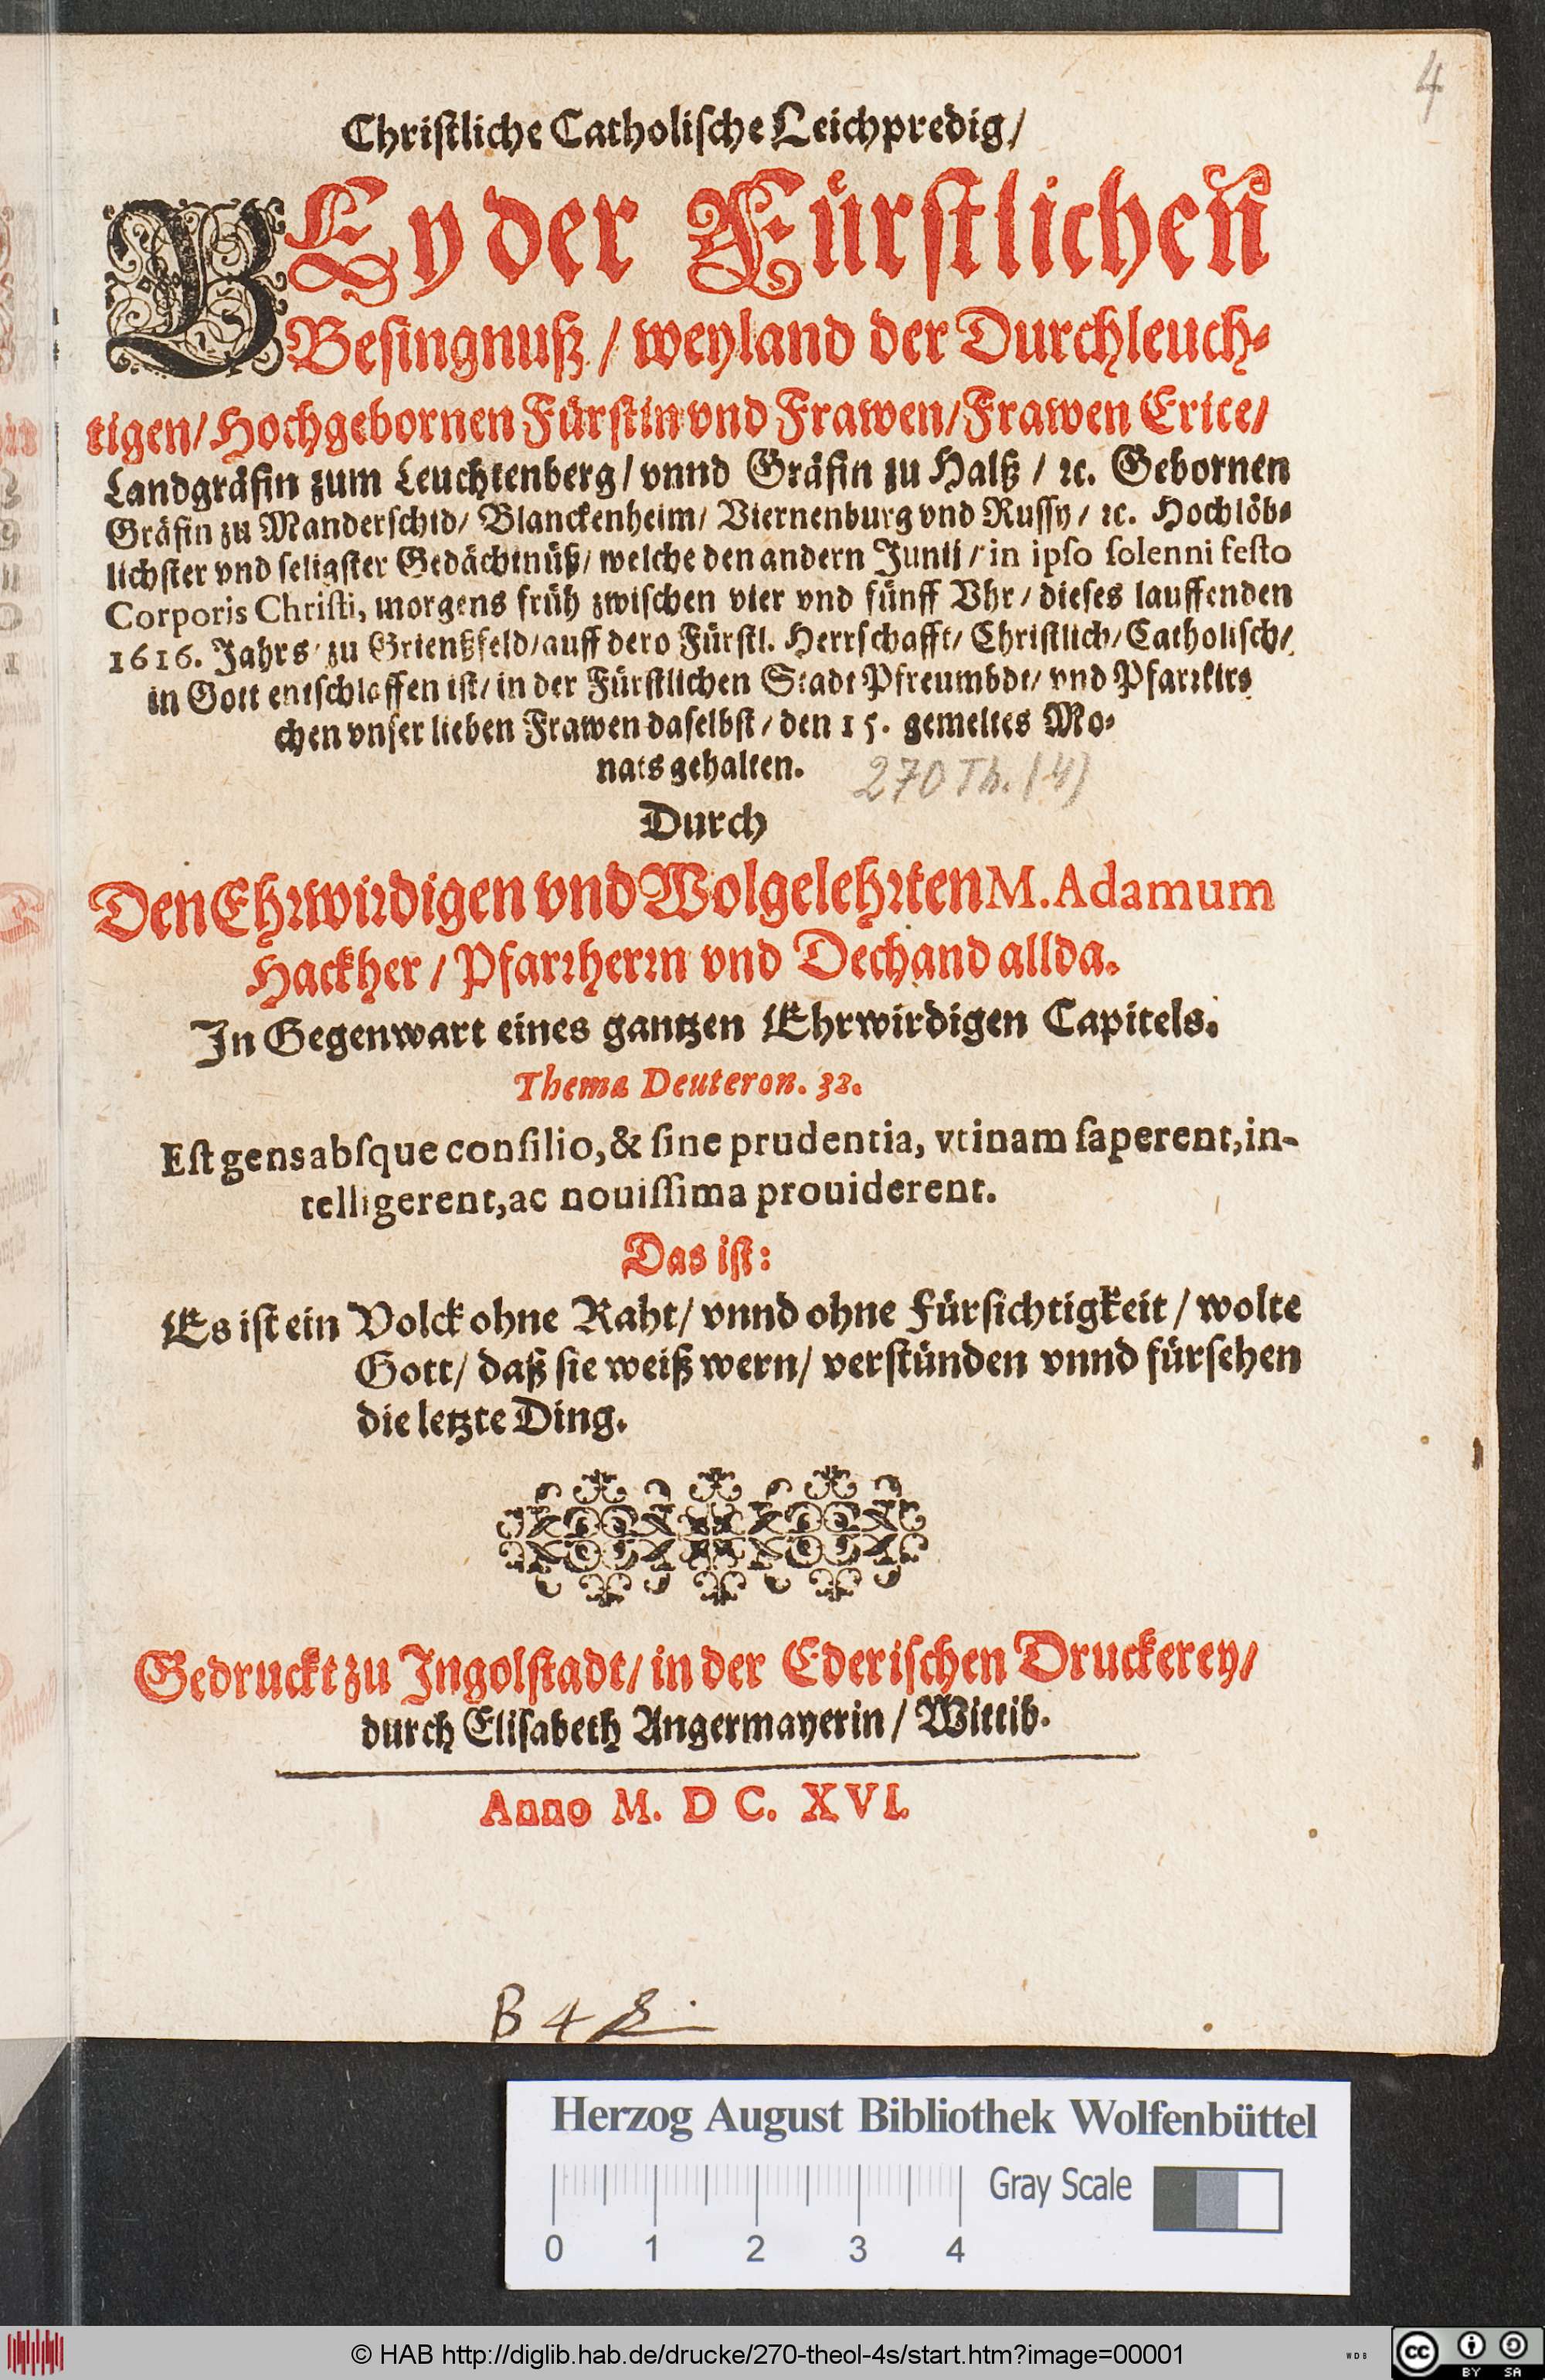 4
Christliche Catholische Leichpredig/
BEy der Fürstlichen̄
Besingnuß / weyland der Durchleuch-
tigen/ Hochgebornen Fürstin vnd Frawen/ Frawen Erice/
Landgräfin zum Leuchtenberg/ vnnd Gräfin zu Halß / ꝛc. Gebornen
Gräfin zu Manderschid/ Blanckenheim/ Viernenburg vnd Russy / ꝛc. Hochlöb-
lichster vnd seligster Gedächtnüß/ welche den andern Junii / in ipso solenni festo
Corporis Christi, morgens früh zwischen vier vnd fünff Vhr / dieses lauffenden
1616. Jahrs/ zu Grienßfeld/ auff dero Fürstl. Herrschafft/ Christlich/ Catholisch/
in Gott entschlaffen ist/ in der Fürstlichen Stadt Pfreumbdt/ vnd Pfarrkir-
chen vnser lieben Frawen daselbst / den 15. gemeltes Mo-
nats gehalten.
270 Th. (4)
Durch
Den Ehrwirdigen vnd Wolgelehrten M. Adamum
Hackher / Pfarrherrn vnd Dechand allda.
In Gegenwart eines gantzen Ehrwirdigen Capitels.
Thema Deuteron. 32.
Est gens absque consilio, & sine prudentia, vtinam saperent, in-
telligerent, ac nouissima prouiderent.
Das ist:
Es ist ein Volck ohne Raht/ vnnd ohne Fürsichtigkeit / wolte
Gott/ daß sie weiß wern/ verstünden vnnd fürsehen
die letzte Ding.
Gedruckt zu Ingolstadt/ in der Ederischen Druckerey/
durch Elisabeth Angermayerin / Wittib.
Anno M. D C. XVI.
B 4
Herzog August Bibliothek Wolfenbüttel
Gray Scale
0 1 2 3 4
© HAB http://diglib.hab.de/drucke/270-theol-4s/start.htm?image=00001
WDB
cc BY SA